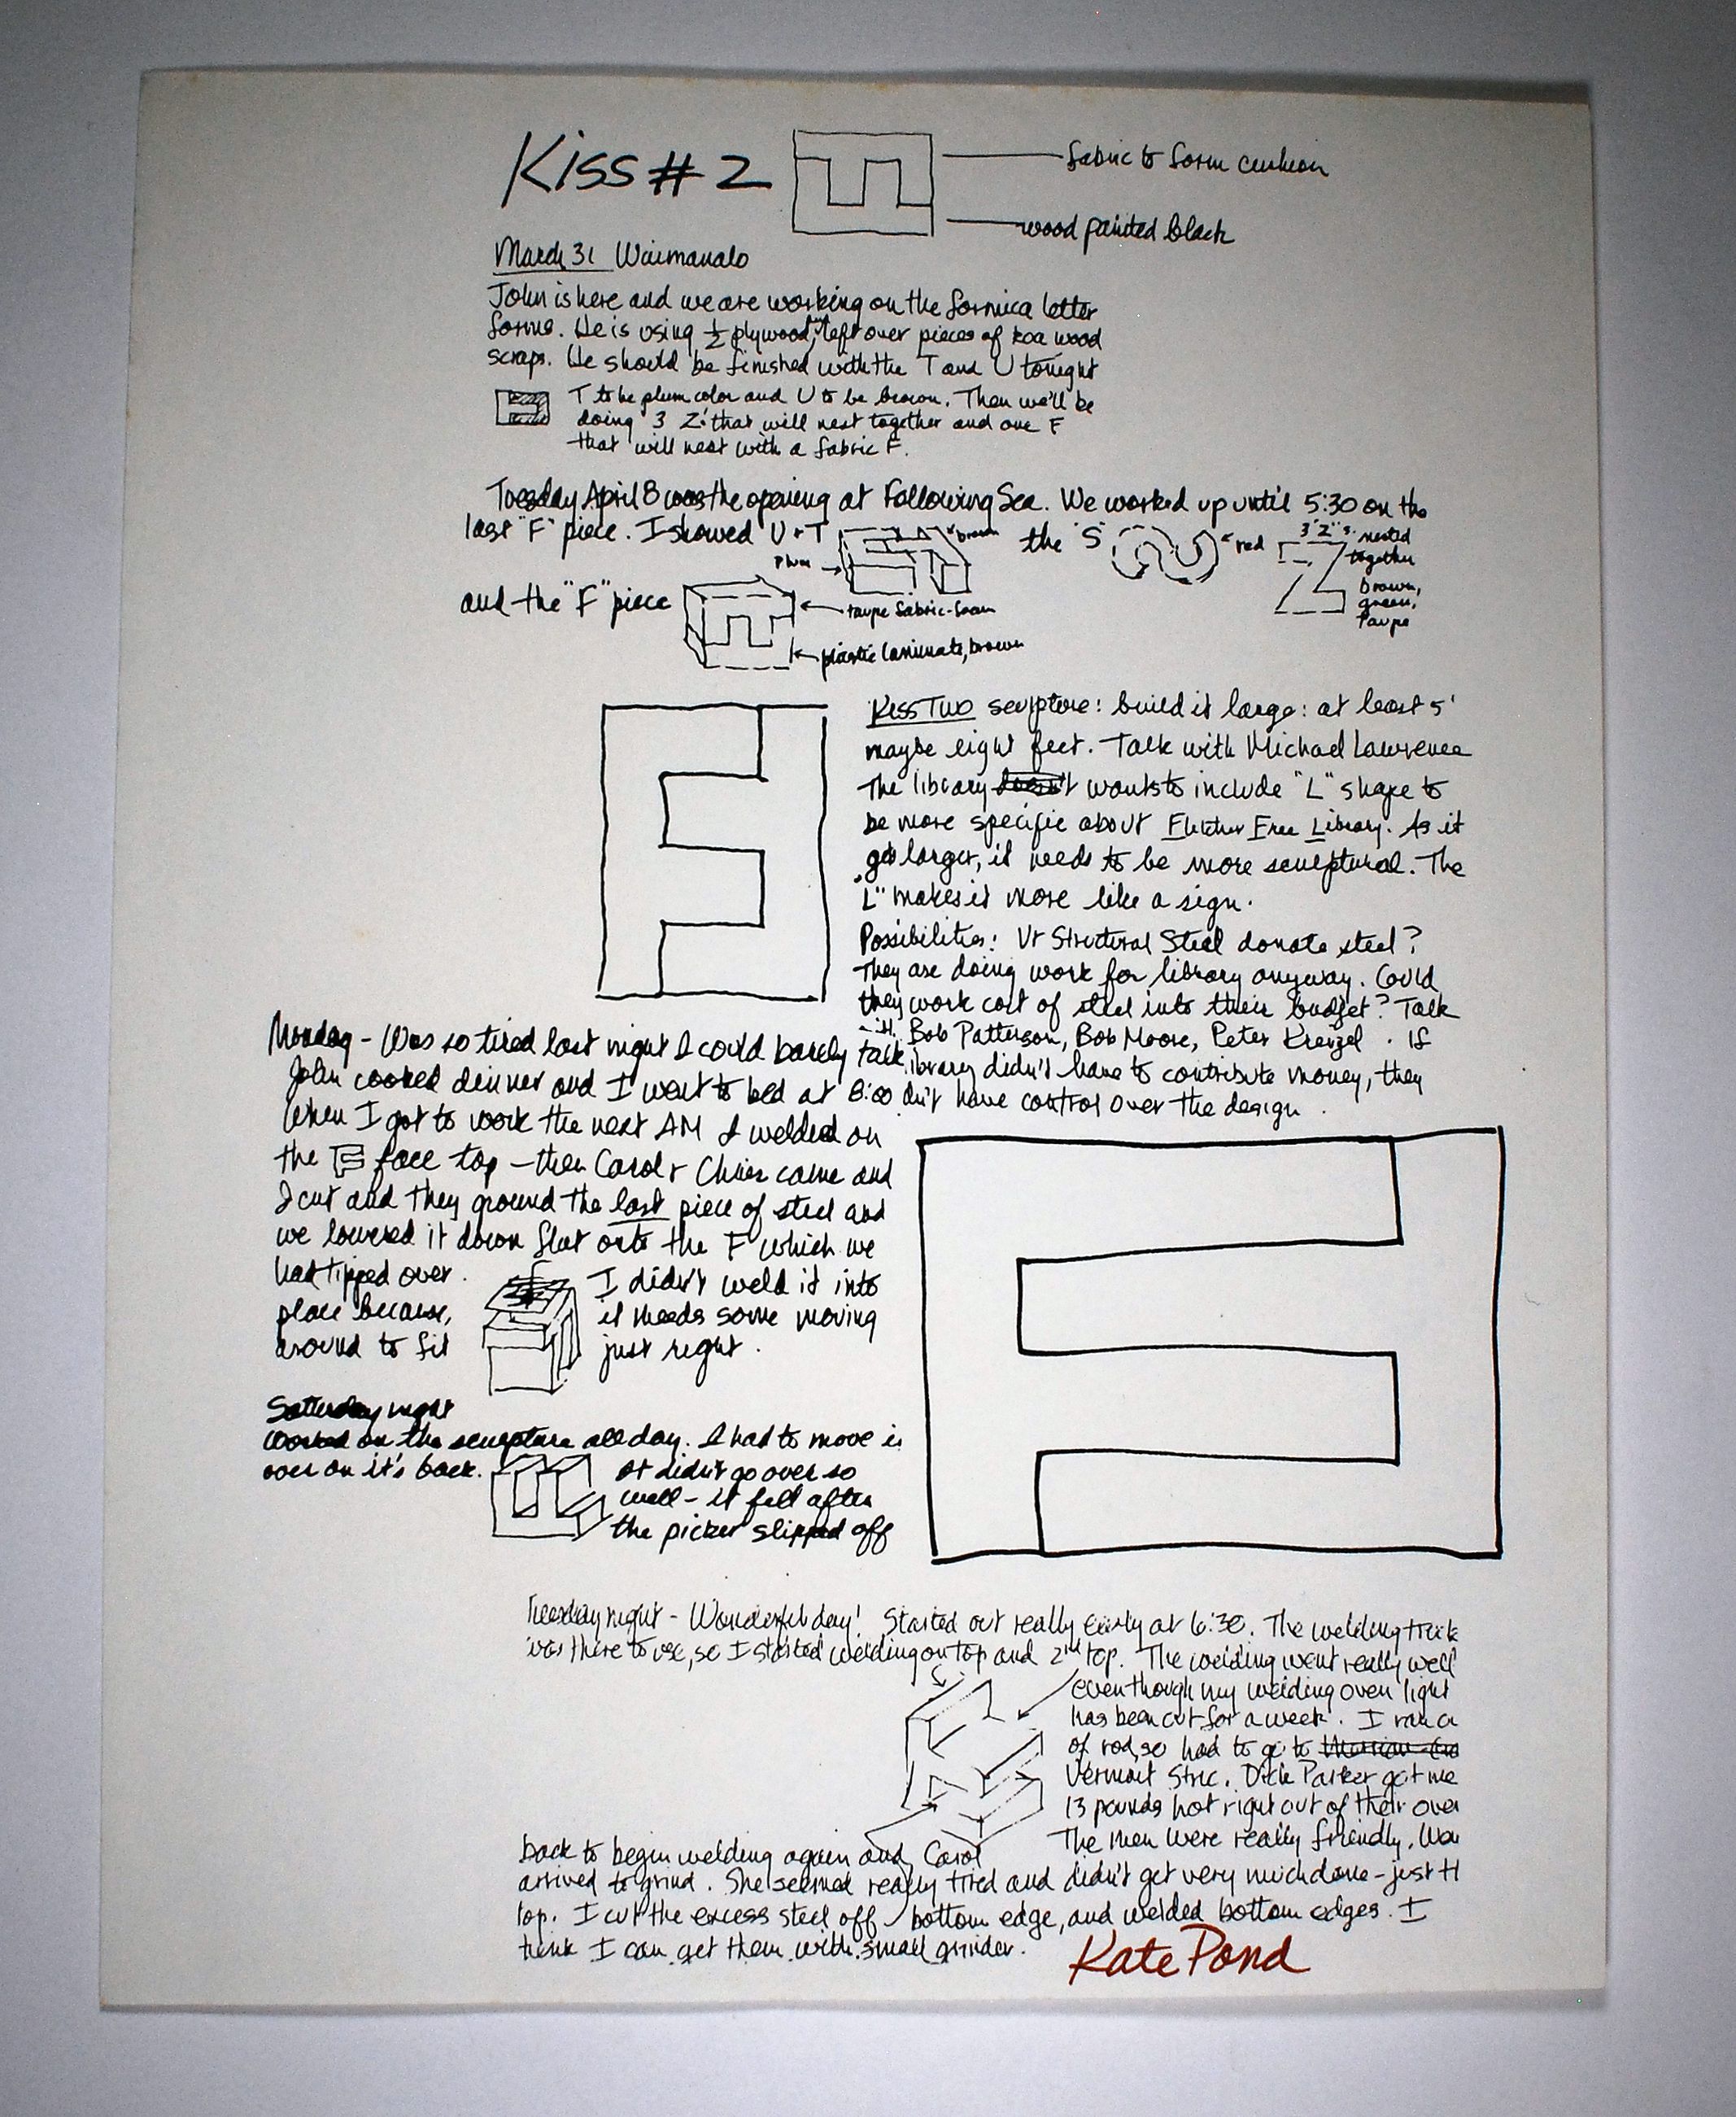 Kiss #2
fabric to form cushion
wood painted black
March 31 Waimanalo
John is here and we are working on the formica letter
forms. He is using 1/2 plywood, left over pieces of koa wood
scraps. He should be finished with the T and U tonight
T to be plum color and U to be brown. Then we'll be
doing 3 Z's that will nest together and one F
that will nest with a fabric F.
Tuesday April 8 was the opening at Following Sea. We worked up until 5:30 on the
last "F" piece. I showed U + T
brown
plum
the "S"
red
3 "Z"s nested
together
brown,
green,
taupe
and the "F" piece
taupe fabric-foam
plastic laminate, brown
Kiss Two sculpture: build it large: at least 5'
maybe eight feet. Talk with Michael Lawrence
The library wants to include "L" shape to
be more specific about Fletcher Free Library. As it
gets larger, it needs to be more sculptural. The
"L" makes it more like a sign.
Possibilities: Vt Structural Steel donate steel?
They are doing work for library anyway. Could
they work cost of steel into their budget? Talk
Bob Patterson, Bob Moore, Peter . If
library didn't have to contribute money, they
dn't have control over the design.
Monday - Was so tired last night I could barely talk.
John cooked dinner and I went to bed at 8:00
When I got to work the next AM I welded on
the face top - then Carol + came and
I cut and they ground the last piece of steel and
we lowered it down flat onto the F which we
had tipped over. I didn't weld it into
place because, it needs some moving
around to fit just right.
Saturday night
Worked on the sculpture all day. I had to move it
over on it's back. It didn't go over so
well - it fell after
the picker slipped off
Tuesday night - Wonderful day! Started out really early at 6:30. The welding truck
was there to use, so I started welding on top and 2nd top. The welding went really well
even though my welding oven light
has been out for a week. I ran o
of rod, so had to go to
Vermont Struc. Dick Parker got me
13 pounds hot right out of their oven
The men were really friendly. Wen
back to begin welding again and Carol
arrived to grind. She seemed really tired and didn't get very much done - just th
top. I cut the excess steel off bottom edge, and welded bottom edges. I
think I can get them with small grinder.
Kate Pond